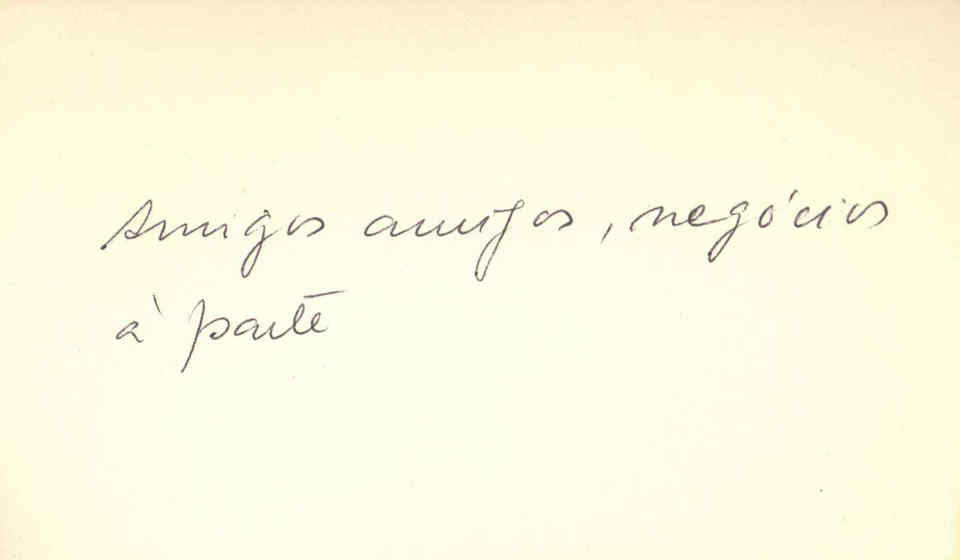 Amigos amigos, negócios
à parte